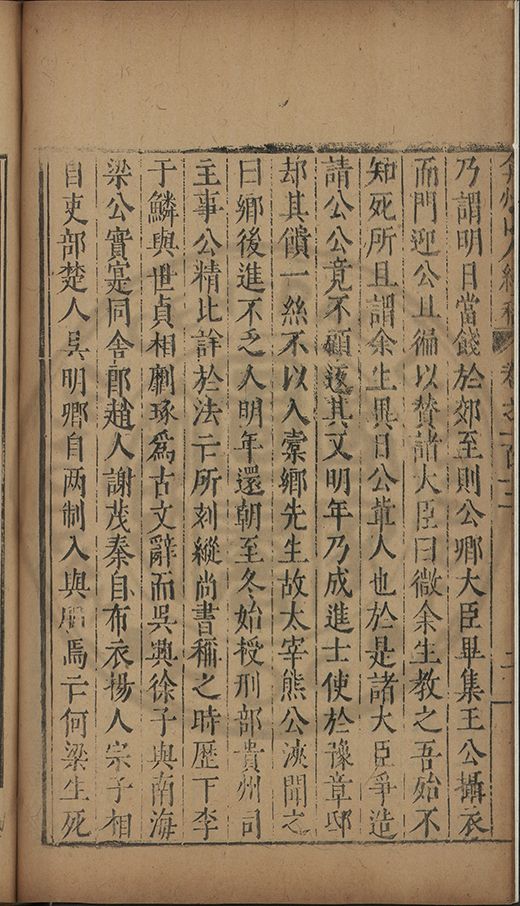 乃謂明日當餞於郊至則公卿大臣畢集王公攝衣
而門迎公且徧以贊諸大臣曰微余生教之吾始不
知死所且謂余生異日公輩人也於是諸大臣爭造
請公公竟不顧返其又明年乃成進士使於豫章邸
却其饋一絲不以入橐鄉先生故太宰熊公浹聞之
曰鄉後進不乏人明年還朝至冬始授刑部貴州司
主事公精比詳於法亡所刻縱尚書稱之時歷下李
于鱗與世貞相劘琢爲古文辭而吳興徐子與南海
梁公實寔同舍郎趙人謝茂秦自布衣揚人宗子相
自吏部楚人吳明卿自两制入與焉亡何梁生死